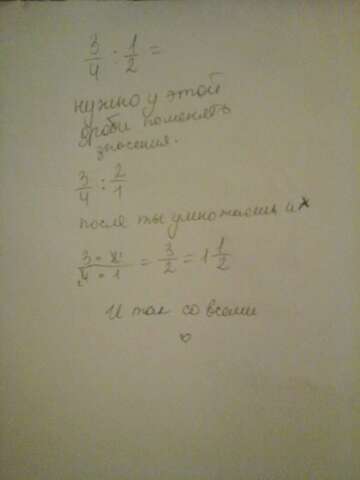 3/4 : 1/2 =
нужно у этой
дроби поменять
значения.
3/4 : 2/1
после ты умножаешь их
3 • 2 / 4 • 1 = 3/2 = 1 1/2
И так со всеми